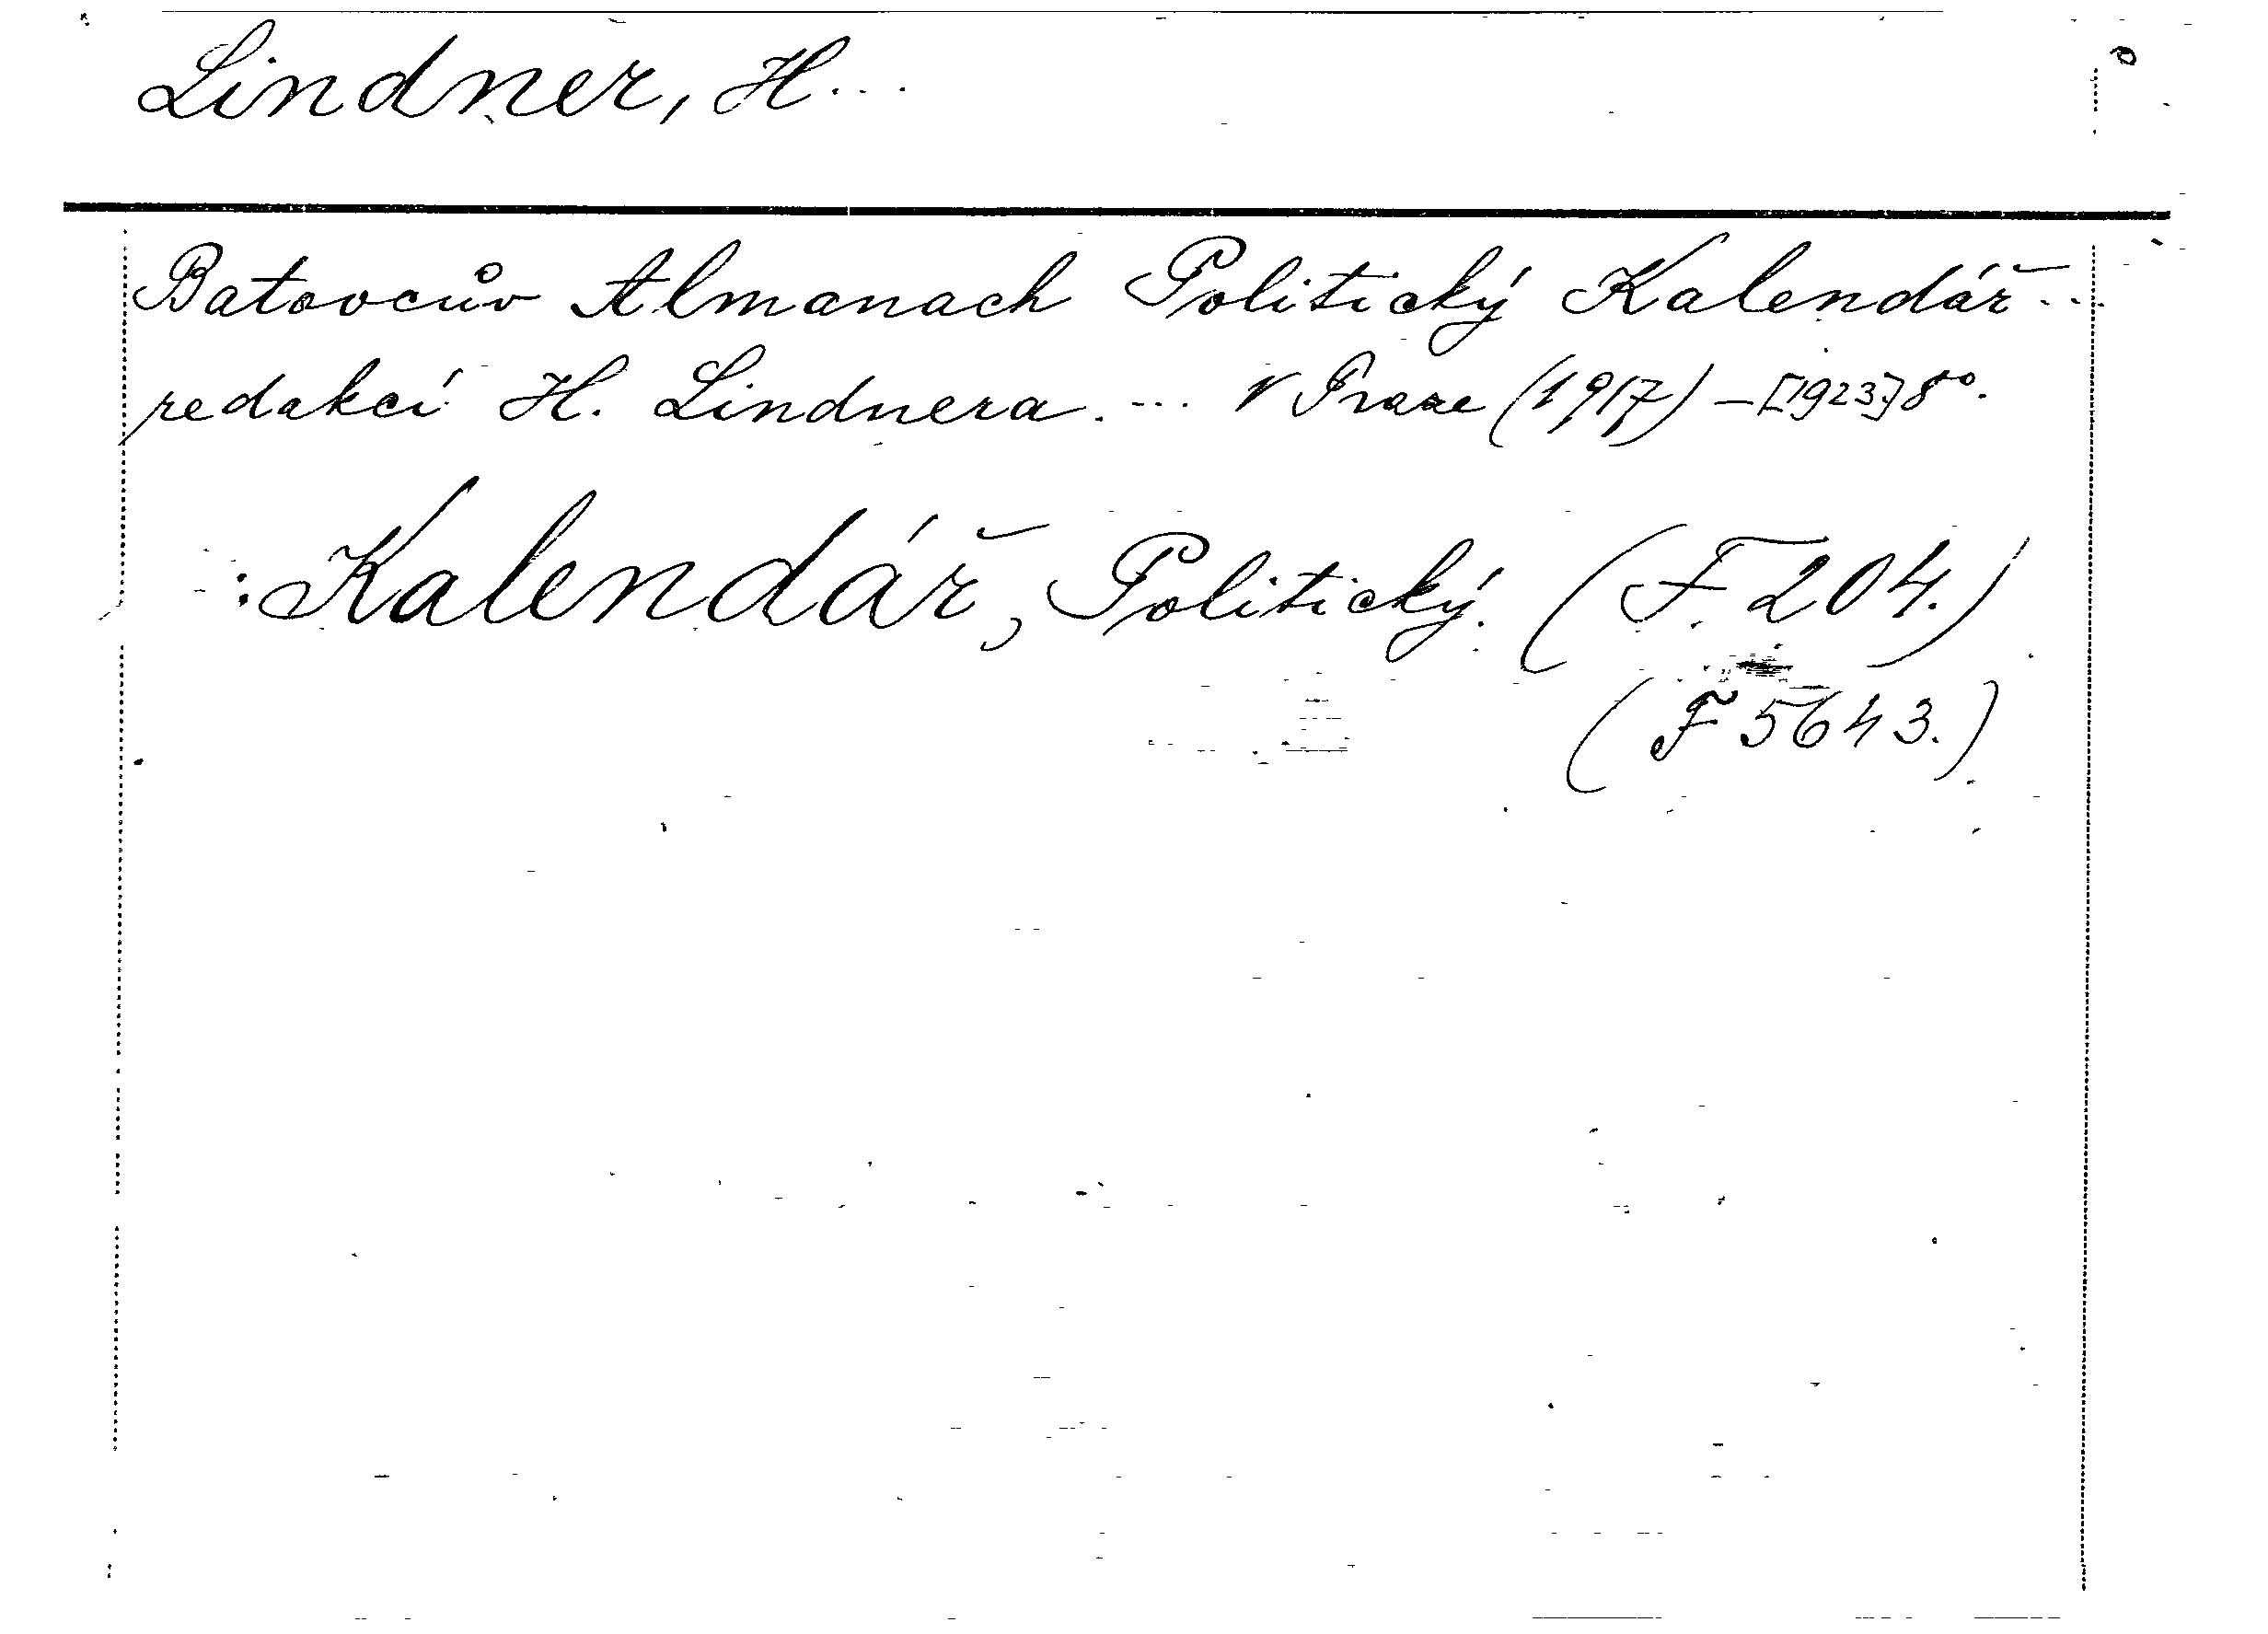 Lindner, H...
Batovcův Almanach Politický Kalendář...
redakcí H. Lindnera. ... V Praze (1917) – [1923] 8°.
: Kalendář, Politický. (F. 204.)
(F 5643.)